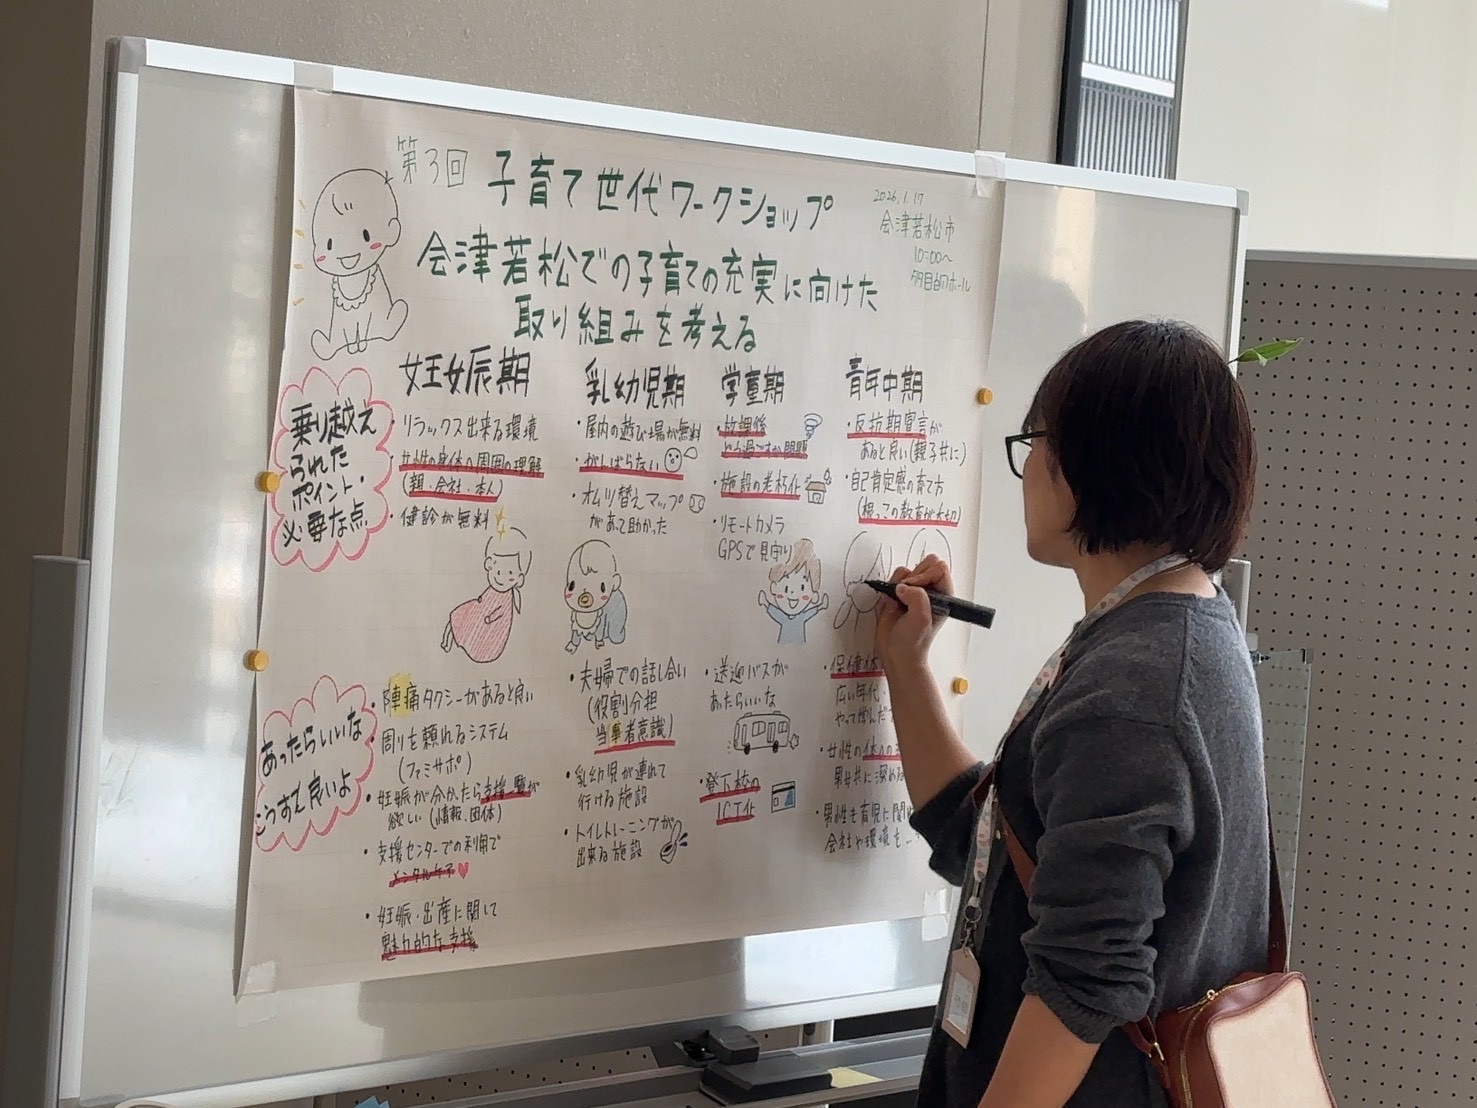 第3回 子育て世代ワークショップ
会津若松での子育ての充実に向けた
取り組みを考える
2026.1.17
会津若松市
10:00〜
多目的ホール
乗り越え
られた
ポイント・
必要な点
妊娠期
・リラックス出来る環境
・女性の身体への周囲の理解
(親・会社・本人)
・健診が無料
乳幼児期
・屋内の遊び場が無料
・がんばらない
・オムツ替えマップ
があって助かった
学童期
・放課後
どう過ごすか問題
・施設の老朽化
・リモートカメラ
GPSで見守り
青年中期
・反抗期宣言が
あると良い(親子共に)
・自己肯定感の育て方
(根っこの教育が大切)
あったらいいな
こうすると良いよ
・陣痛タクシーがあると良い
・周りを頼れるシステム
(ファミサポ)
・妊娠が分かったら支援一覧が
欲しい(情報、団体)
・支援センターでの利用で
メンタルケア
・妊娠・出産に関して
魅力的な支援
・夫婦での話し合い
(役割分担
当事者意識)
・乳幼児が連れて
行ける施設
・トイレトレーニングが
出来る施設
・送迎バスが
あったらいいな
・登下校の
ICT化
・保健体
広い年代
・女性の体への
男女共に深める
・男性も育児に関
会社や環境も